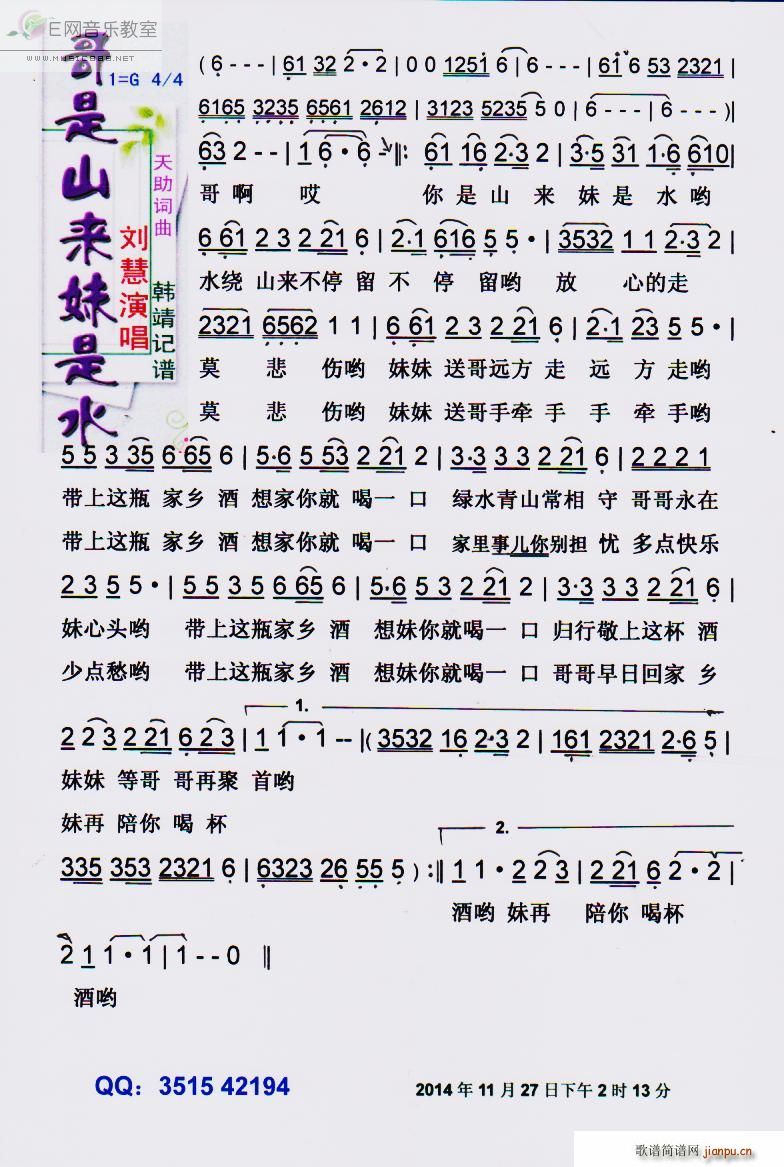 E网音乐教室
WWW.MUSICEOL.COM
哥是山来妹是水
1=G 4/4
天助词曲
刘慧演唱
韩靖记谱
(6 - - - | 61 32 2·2 | 0 0 1251 6 | 6 - - - | 61 6 53 2321 |
6165 3235 6561 2612 | 3123 5235 5 0 | 6 - - - | 6 - - - )|
63 2 - - | 1 6·6 - ‖: 61 16 2·3 2 | 3·5 31 1·6 610 |
哥啊 哎 你是山来妹是水哟
6 61 2 3 2 21 6 | 2·1 616 5 5· | 3532 1 1 2·3 2 |
水绕 山来不停 留 不 停 留哟 放 心的走
2321 6562 1 1 | 6 61 2 3 2 21 6 | 2·1 23 5 5· |
莫 悲 伤哟 妹妹 送哥远方 走 远 方 走哟
莫 悲 伤哟 妹妹 送哥手牵 手 手 牵 手哟
5 5 3 35 6 65 6 | 5·6 5 53 2 21 2 | 3·3 3 3 2 21 6 | 2 2 2 1
带上这瓶 家乡 酒 想家你就 喝一 口 绿水青山常相 守 哥哥永在
带上这瓶 家乡 酒 想家你就 喝一 口 家里事儿你别担 忧 多点快乐
2 3 5 5· | 5 5 3 5 6 65 6 | 5·6 5 3 2 21 2 | 3·3 3 3 2 21 6 |
妹心头哟 带上这瓶家乡 酒 想妹你就喝一 口 归行敬上这杯 酒
少点愁哟 带上这瓶家乡 酒 想妹你就喝一 口 哥哥早日回家 乡
1.
2 2 3 2 21 6 2 3 | 1 1·1 - - |( 3532 16 2·3 2 | 161 2321 2·6 5 |
妹妹 等哥 哥再聚 首哟
妹再 陪你 喝 杯
2.
335 353 2321 6 | 6323 26 55 5 ) :‖ 1 1· 2 2 3 | 2 21 6 2·2 |
酒哟 妹再 陪你 喝杯
2 1 1·1 | 1 - - 0 ‖
酒哟
QQ：3515 42194
2014 年 11 月 27 日下午 2 时 13 分
歌谱简谱网 jianpu.cn